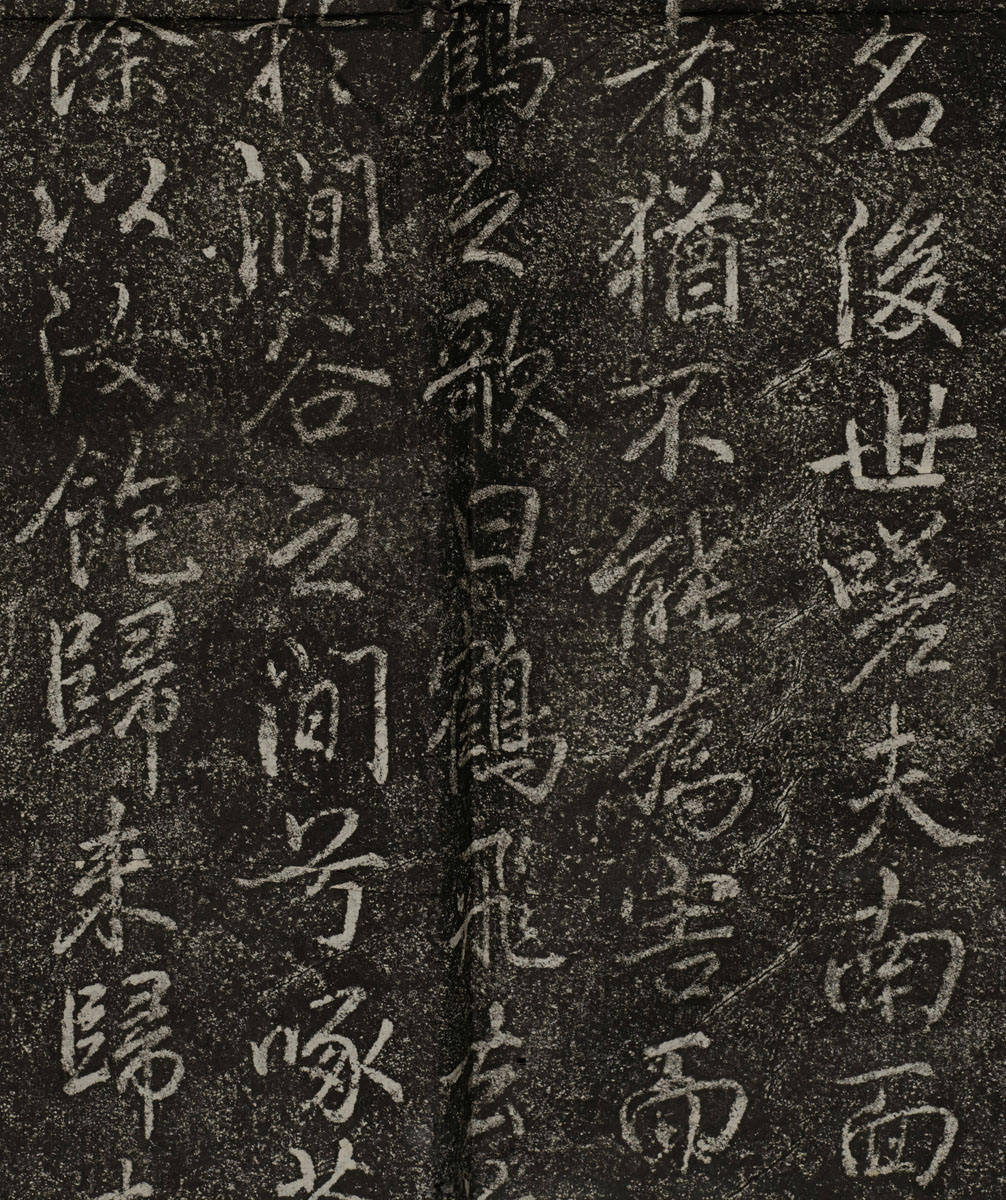 名後世嗟夫南面
者猶不能為害而
鶴之歌曰鶴飛去
於澗谷之間兮啄
餘以汝飽歸来歸